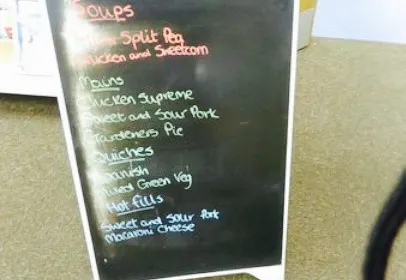 Soups
Split Pea
Chicken and Sweetcorn
Mains
Chicken Supreme
Sweet and Sour Pork
Gardeners Pie
Quiches
Spanish
Mixed Green Veg
Hot fills
Sweet and Sour Pork
Macaroni Cheese